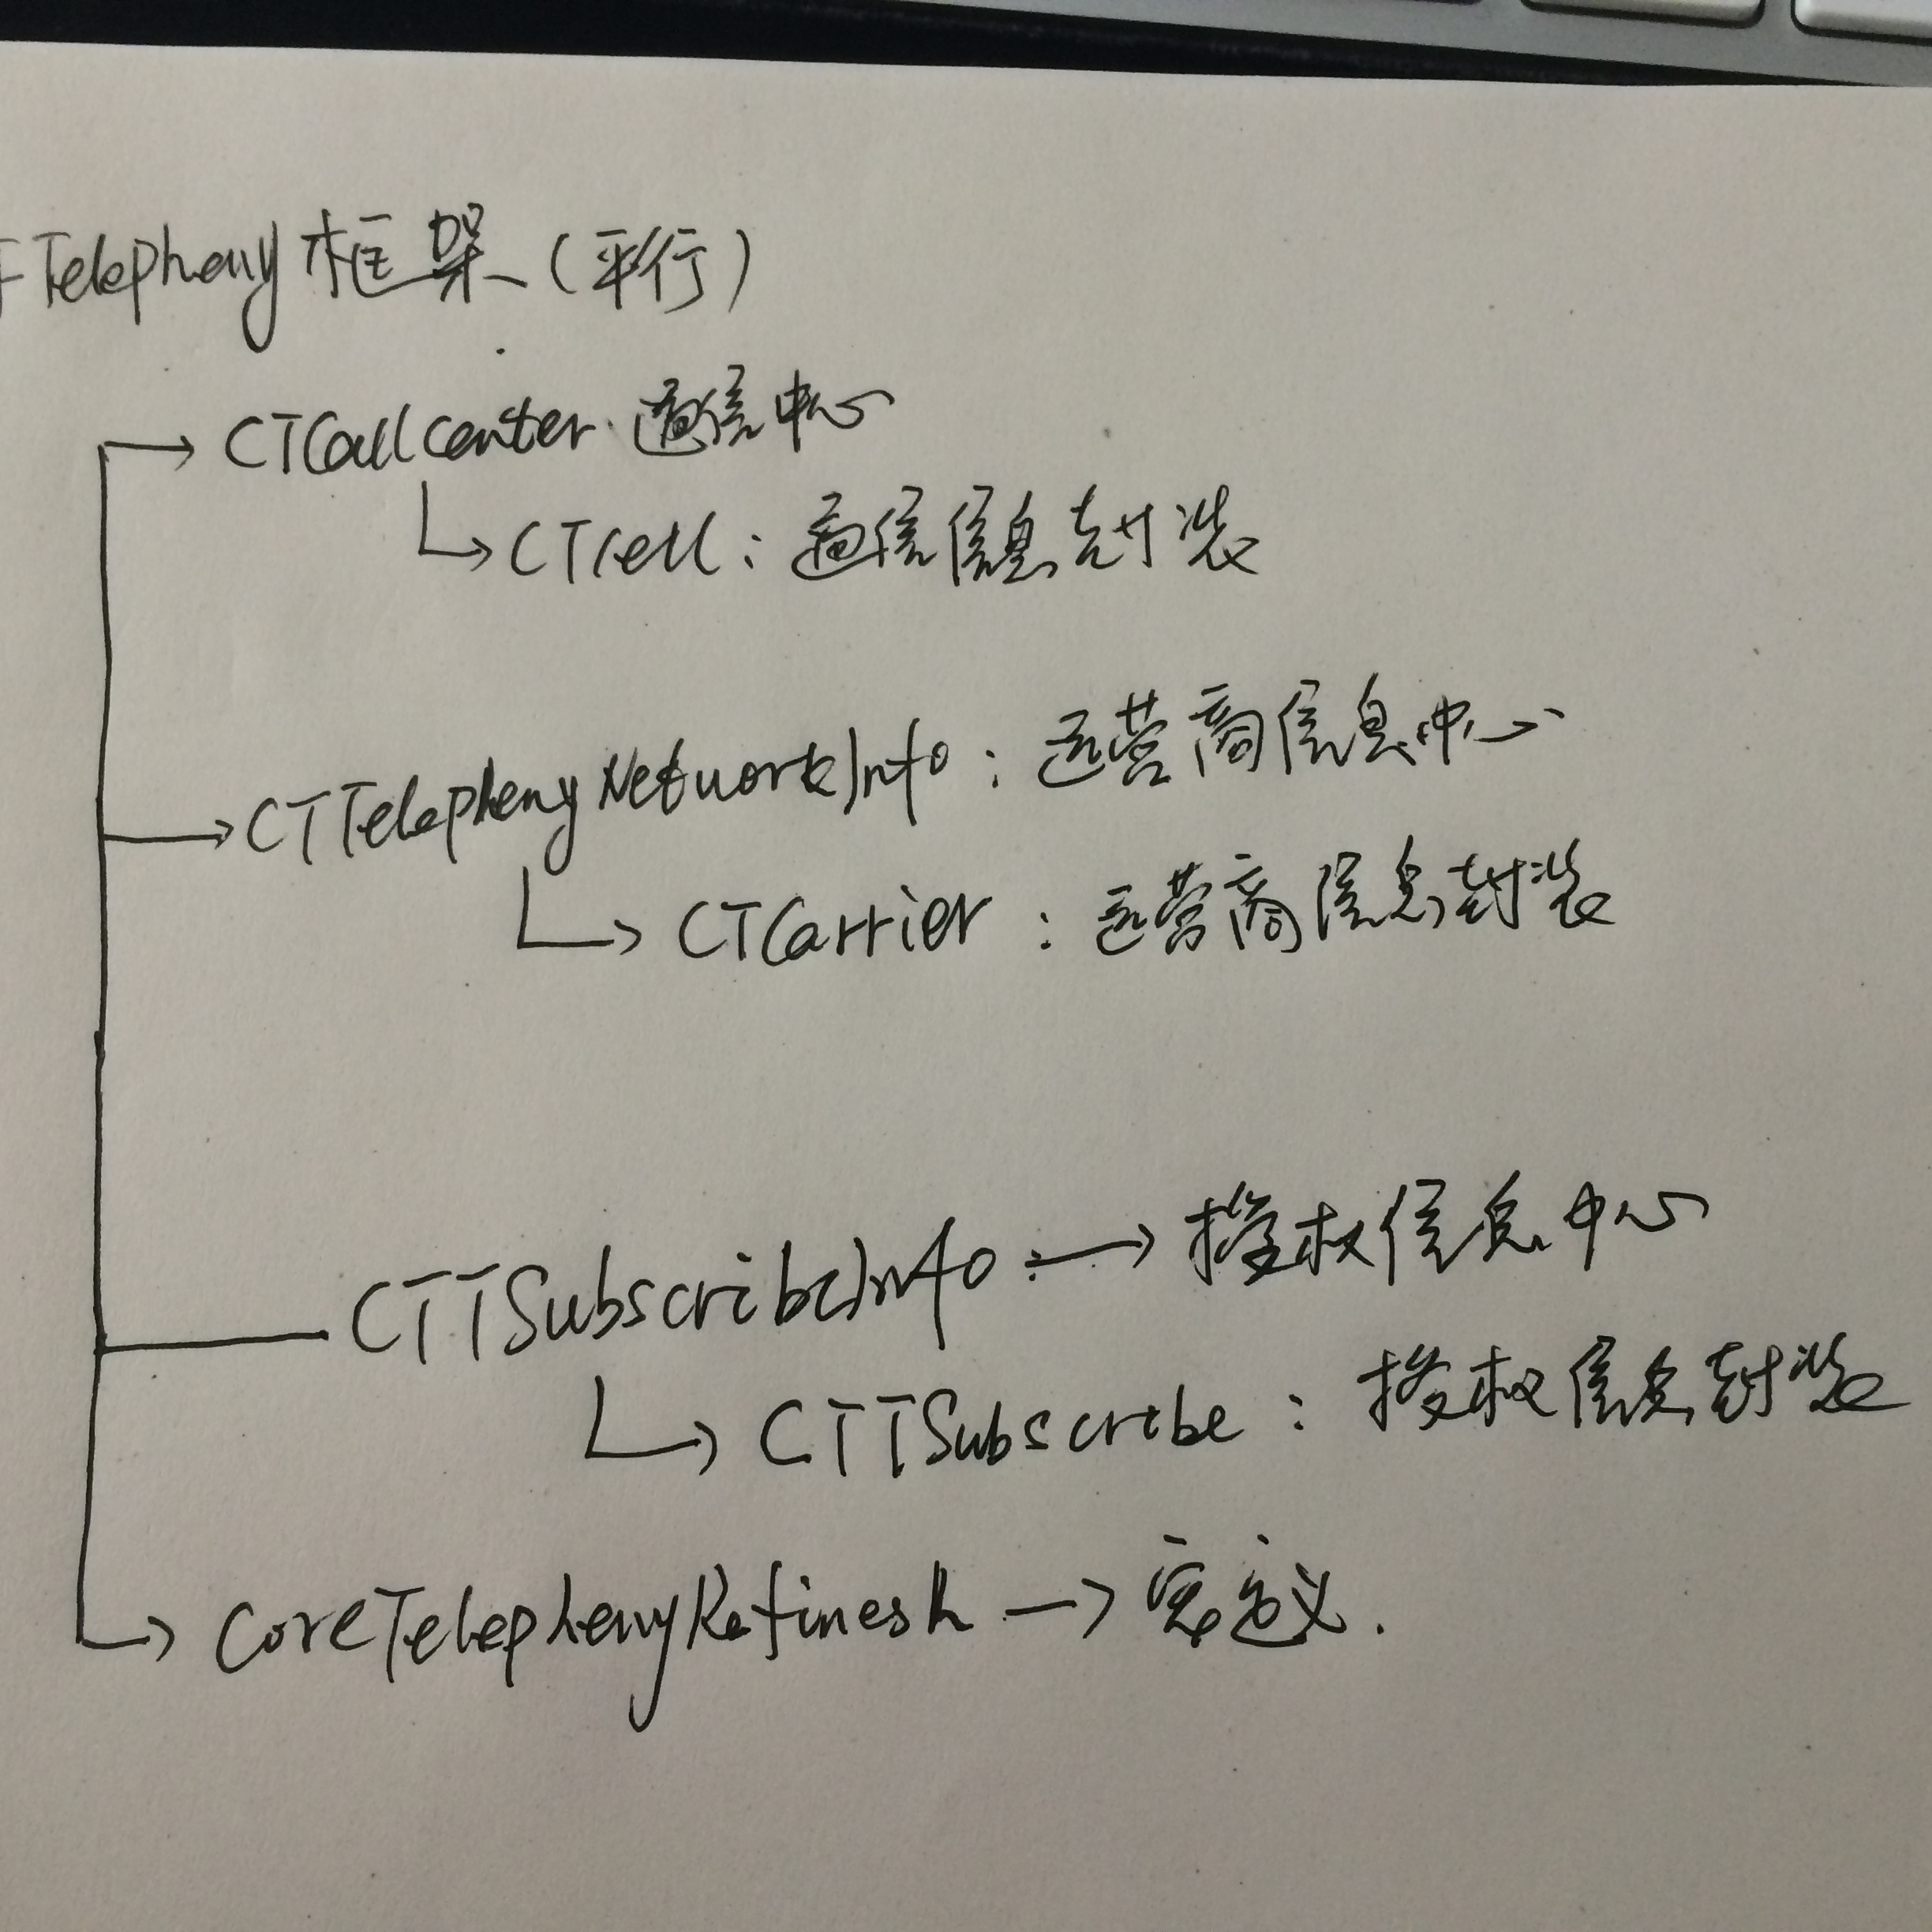 Telepheny框架(平行)
CTCallcenter.通信中心
CTCell:通信信息封装
CTTelephenyNetworkInfo:运营商信息中心
CTCarrier:运营商信息封装
CTTSubscribeInfo:→授权信息中心
CTTSubscribe:授权信息封装
CoreTelephenyRefinesh→宏定义.